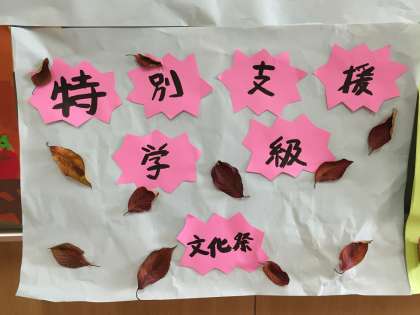 特別支援
学級
文化祭